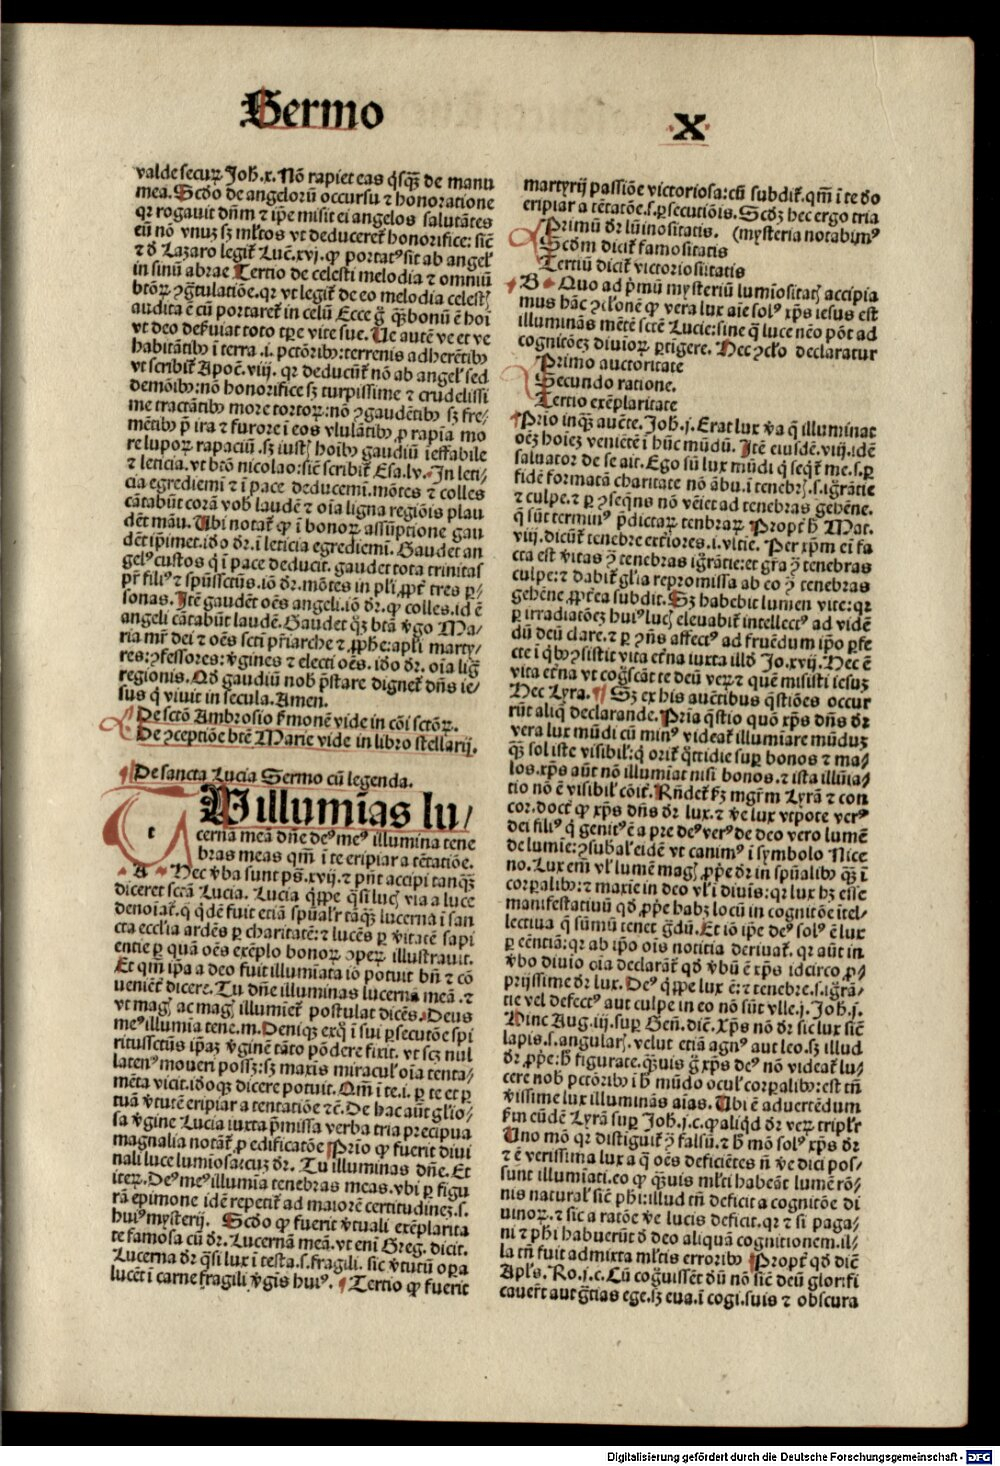 Sermo
X
valde secuꝝ Joh̄.x. Nō rapiet eas q̇sq̄ꝫ de manu
mea. Scd̄o de angelorū occursu ⁊ honoratione
qꝛ rogauit dn̄m ⁊ ip̄e misit ei angelos salutātes
eū nō vnuꝫ sꝫ ml̄tos vt deducerēt honorifice: sic̄
⁊ d̄ Lazaro legit̄ Luc̄.xvj. ꝙ portatꝰ sit ab angel̓
in sinū abrae Tertio de celesti melodia ⁊ omniū
btōꝝ ꝯgͣtulatiōe. qꝛ vt legit̄ de eo melodia celestꝭ
audita ē cū portaret̄ in celū Ecce g̊ q̄ꝫ bonū ē hoī
vt deo def̄uiat toto tꝑe vite sue. Ue autē ve et ve
habitātibꝰ ī terra .i. pctōribꝰ: terrenis adherētibꝰ
vt scribit̄ Apoc̄.viij. qꝛ deducūt̄ nō ab angel̓ sed
demōibꝰ: nō honorifice sꝫ turpissime ⁊ crudelissi
me tractātibꝰ more tortoꝝ: nō ꝯgaudētibꝰ sꝫ fre⸗
mētibꝰ p̄ ira ⁊ furore ī eos vlulātibꝰ ꝓ rapīa mo
re lupoꝝ rapaciū. sꝫ iustꝭ hoībꝰ gaudiū ieffabile
⁊ leticia. vt btō nicolao: sic̄ scribit̄ Esa.lv. In leti⸗
cia egrediemi ⁊ ī pace deducemi. mōtes ⁊ colles
cātabūt corā vob̓ laudē ⁊ oīa ligna regiōis plau
dēt māu. Ubi notat̄ ꝙ ī bonoꝝ assūptione gau
dēt ip̄imet. iō dꝛ. ī leticia egrediemi. Gaudet an
gelꝰ custos q̇ ī pace deducit. gaudet tota trinitas
pr̄ filiꝰ ⁊ sp̄ussctūs. iō dꝛ. mōtes in pl̓i ꝓpt̓ tres ꝑ⸗
sonas. Itē gaudēt oēs angeli. iō dꝛ. ꝙ colles. id ē
angeli cātabūt laudē. Gaudet q̄ꝫ btā v̓go Ma⸗
ria mr̄ dei ⁊ oēs scti pr̄iarche ⁊ ꝓphe: apl̓i marty⸗
res: ꝯfessores: v̓gines ⁊ electi oēs. iō dꝛ. oīa lig̓
regionis. Qd̄ gaudiū nob̓ p̄stare dignet̄ dn̄s ie⸗
sus q̇ viuit in secula. Amen.
De sctō Ambrosio f̄monē vide in cōi sctōꝝ.
De ꝯceptiōe btē Marie vide in libro stellarij.
De sancta Lucia Sermo cū legenda.
t U illumīas lu⸗
cerna meā dn̄e deꝰ meꝰ illumina tene
bras meas qm̄ ī te eripiar a tētatiōe.
A Hec v̓ba sunt ps̄.xvij. ⁊ pn̄t accipi tanq̄ꝫ
diceret sctā Lucia. Lucia q̇ppe q̄si lucꝭ via a luce
denoīat̄. q̄ q̇dē fuit etiā spūal̓r tāq̄ꝫ lucerna ī san
cta eccl̓ia ardēs ꝑ charitatē: ⁊ lucēs ꝑ v̓itatē sapi
entie ꝑ quā oēs exēplo bonoꝝ oꝑeꝝ illustrauit.
Et qm̄ ip̄a a deo fuit illumīata iō potuit bn̄ ⁊ cō
ueniēt̓ dicere. Tu dn̄e illuminas lucernā meā .⁊
vt magꝭ ac magꝭ illumiet̄ postulat dicēs. Deus
meꝰ illumīa tene.m. Deniqꝫ exq̇ ī sui ꝑsecutōe spi
ritussctūs ip̄aꝫ v̓ginē tāto pōdere fixit. vt scꝫ nul
latenꝰ moueri possꝫ: sꝫ maxīs miracul̓ oīa tenta⸗
mēta vicit. iō qꝫ dicere potuit. Qm̄ ī te.i. ꝑ te et ꝑ
tuā v̓tutē eripiar a tentatiōe ⁊c̄. De hac aūt gl̓io⸗
sa v̓gine Lucia iuxta p̄missa verba tria precipua
magnalia notāt̄ ꝓ edificatōe Prio ꝙ fuerit diui
nali luce lumīosa: cuꝫ dꝛ. Tu illuminas dn̄e. Et
iteꝝ. Deꝰ meꝰ illumīa tenebras meas. vbi ꝑ figu
rā epimone idē repetit̄ ad maiorē certitudinē. s.
huiꝰ mysterij. Scd̄o ꝙ fuerit v̓tuali exēplarita
te famosa cū dꝛ. Lucernā meā. vt eni Greg. dicit.
Lucerna dꝛ q̄si lux ī testa. s. fragili. sic̄ v̓tutū oꝑa
lucēt ī carne fragili v̓gīs huiꝰ. Tertio ꝙ fuerit
martyrij passiōe victoriosa: cū subdit̄. qm̄ ī te do
eripiar a tētatōe. s. ꝑsecutiōis. Scd̓ꝫ hec ergo tria
Primū dꝛ lūinositatis. (mysteria notabimꝰ
Scd̄m dicit̄ famositatis
Tertiū dicit̄ victoriositatis
B Quo ad pͥmū mysteriū lumīositatꝭ accipia
mus hāc ꝯcl̓onē ꝙ vera lux aīe solꝰ xp̄s iesus est
illuminās mētē sctē Lucie: sine q̄ luce nēo pōt ad
cognitōeꝫ diuīoꝝ ꝑtigere. Hec ꝯcl̓o declaratur
Primo auctoritate
Secundo ratione.
Tertio exēplaritate
Prio inq̄ꝫ aucte. Joh̄.j. Erat lux v̓a q̄ illuminat
oēꝫ hoīeꝫ veniētē ī hūc mūdū. Itē eiusdē.viij. idē
saluator de se ait. Ego sū lux mūdi q̇ seqt̄ me .s. ꝑ
fidē formatā charitate nō ābu. ī tenebrꝭ. s. igrātie
⁊ culpe. ⁊ ꝑ ꝯseq̄ns nō vēiet ad tenebras gehēne.
q̄ sūt terminꝰ p̄dictaꝝ tenbraꝝ Propt̓ hͦ Mat.
viij. dicūt̄ tenebre exteriores .i. vltie. Per xp̄m ei fa
cta est v̓itas ꝯ tenebras igrātie: et grā ꝯ tenebras
culpe: ⁊ dabit̄ gl̓ia repromissa ab eo ꝯ tenebras
gehēne. ꝓpt̓ea subdit. Sꝫ habebit lumen vite: qꝛ
ꝑ irradiatōeꝫ huiꝰ lucꝭ eleuabit̄ intellectꝰ ad vidē
dū deū clare. ⁊ ꝑ ꝯn̄s affectꝰ ad fruēdum ip̄o ꝑfe
cte ī q̇bꝰ ꝯsistit vita et̓na iuxta illd̓ Jo.xvij. Hec ē
vita et̓na vt cog̓scāt te deū veꝝ ⁊ quē misisti iesuꝫ
Hec Lyra. Sꝫ ex his auctibus q̄stiōes occur
rūt aliq̄ declarande. Pria q̄stio quō xp̄s dn̄s dꝛ
vera lux mūdi cū minꝰ videat̄ illumiare mūduꝫ
q̄ꝫ sol iste visibil̓: q̇ orit̄ q̄ttidie suꝑ bonos ⁊ ma⸗
los. xp̄s aūt nō illumīat nisi bonos. ⁊ ista illuīa⸗
tio nō ē visibil̓ cōit̓. Rn̄det̄ ẜꝫ mgr̄m Lyrā ⁊ con
cor. doct̓ ꝙ xp̄s dn̄s dꝛ lux. ⁊ v̓e lux vtpote verꝰ
dei filiꝰ q̇ genitꝰ ē a pre deꝰ verꝰ de deo vero lumē
de lumīe: ꝯsubal̓ eidē vt canimꝰ ī symbolo Nice
no. Lux em̄ vl̓ lumē magꝭ ꝓp̓e dꝛ in spūalibꝰ q̄ꝫ ī
corꝑalibꝰ: ⁊ maxīe in deo vl̓ ī diuīs: qꝛ lux hꝫ esse
manifestatiuū qd̄ ꝓp̓e habꝫ locū in cognitōe ītel⸗
lectiua q̄ sūmū tenet g̓dū. Et iō ip̄e deꝰ solꝰ ē lux
ꝑ eēntiā: qꝛ ab ip̄o oīs notitia deriuat̄. qꝛ aūt in
v̓bo diuio oīa declarāt̄ qd̄ v̓bū ē xp̄s idcirco ꝓ⸗
prijssime dꝛ lux. Deꝰ q̇ppe lux ē: ⁊ tenebre. s. igrā⸗
tie vel defectꝰ aut culpe in eo nō sūt vlle .j. Joh̄.j.
Hinc Aug.iij. suꝑ Gen̄. dic̄. Xp̄s nō dꝛ sic lux sic̄
lapis. s. angularꝭ. velut etiā agnꝰ aut leo. sꝫ illud
dꝛ ꝓp̓e: hͦ figurate. q̄uis g̊ xp̄s deꝰ nō videat̄ lu⸗
cere nob̓ pctōribꝰ ī hͦ mūdo ocul̓ corꝑalibꝰ: est tn̄
v̓issime lux illuminās aīas. Ubi ē aduertēdum
ẜm eūdē Lyrā suꝑ Joh̄.j.c. ꝙ aliqd̄ dꝛ veꝝ tripl̓r
Uno mō qꝛ distīguit̄ ꝯ falsū. ⁊ hͦ mō solꝰ xp̄s dꝛ
⁊ ē verissima lux a q̄ oēs deficiētes n̄ v̓e dici pos⸗
sunt illumiati. eo ꝙ q̄uis ml̄ti habeāt lumē rō⸗
nis natural̓ sic̄ ph̄i: illud tn̄ deficit a cognitōe di
uinoꝝ. ⁊ sic a ratōe v̓e lucis deficit. qꝛ ⁊ si paga⸗
ni ⁊ ph̄i habuerūt d̄ deo aliquā cognitionem. il⸗
la tn̄ fuit admixta ml̄tis erroribꝰ Propt̓ qd̄ dic̄
Apl̓s. Ro.j.c. Cū cog̓uissēt dn̄ nō sic̄ deū glorifi
cauer̄t aut grātias ege. sꝫ eua. ī cogi. suis ⁊ obscura
Digitalisierung gefördert durch die Deutsche Forschungsgemeinschaft - DFG